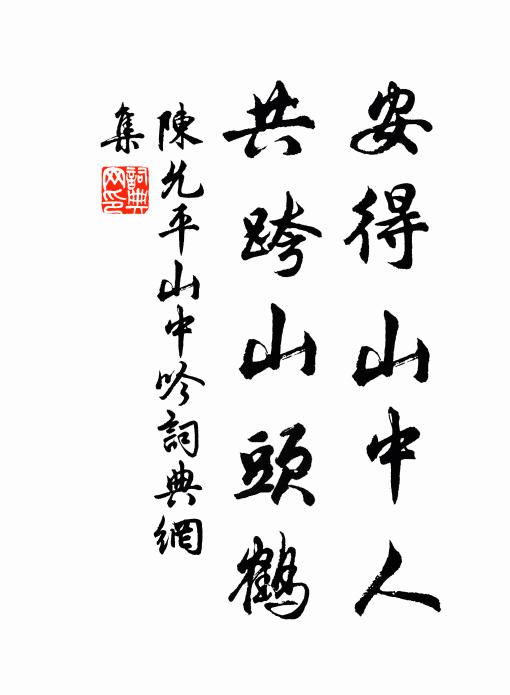 安得山中人
共跨山頭鶴
陳允平山中吟詞典網
集
詞典
网印